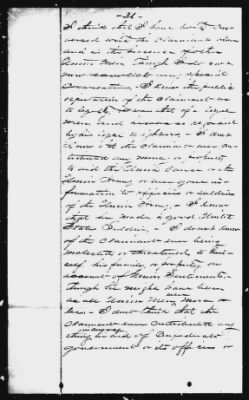 - 26 -
I think that I have both con-
versed with the claimant alone
and in the presence of other
Union Men though I do not
now recollect any special
conversation. I know the public
reputation of the claimant as
to loyalty. It was that of a loyal
man and
by his loyal neighbors. I don't
know that the claimant ever con-
tributed any money or property
to aid the Union Cause or the
Union Army or ever gave in-
formation to officers or soldiers
of the Union Army. I know
that he made a good United
States Soldier. I do not know
of the claimant ever being
molested or threatened to him-
self, his family or property on
account of Union Sentiments,
though he might have been
as all Union Men were more or
less. I don't think that the
claimant ever contributed any
thing in aid of Confederate
government or its officers or